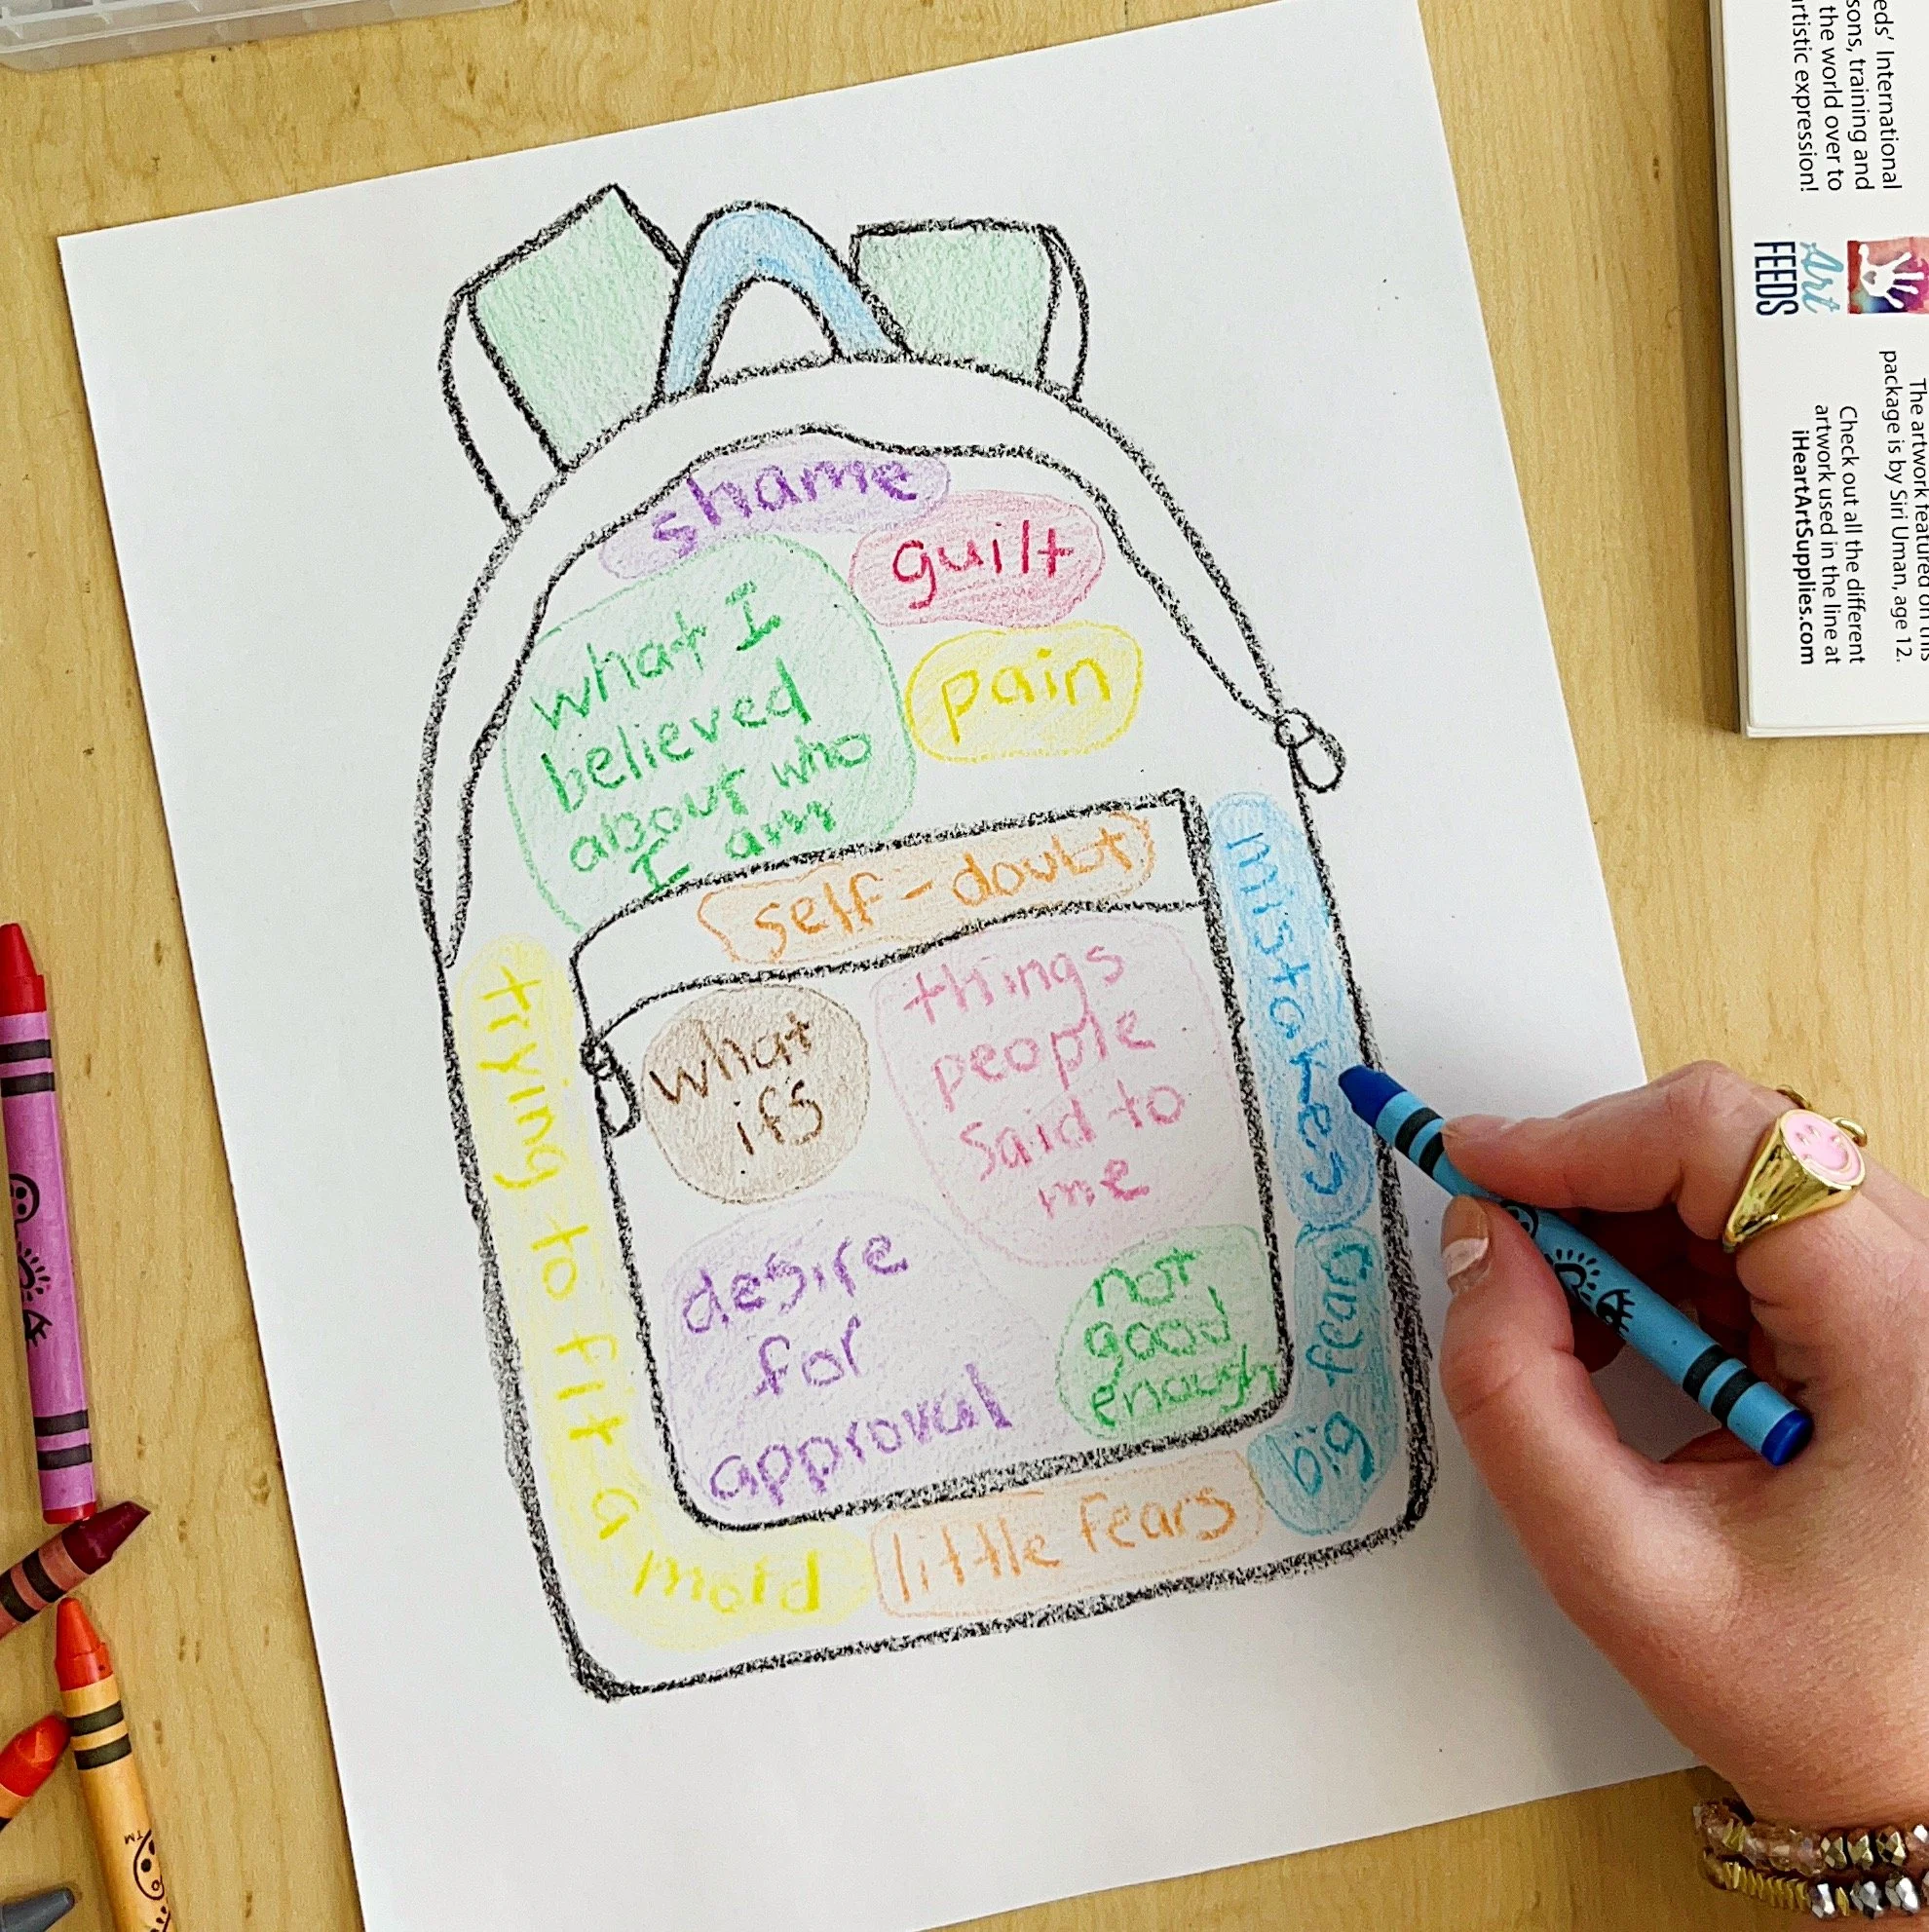 shame
guilt
what I
believed
about who
I am
pain
self-doubt
mistakes
trying to fit a mold
what
ifs
things
people
said to
me
desire
for
approval
not
good
enough
big fears
little fears
eds' International
sons, training and
the world over to
artistic expression!
Art
FEEDS
The artwork featured on this
package is by Siri Uman, age 12.
Check out all the different
artwork used in the line at
iHeartArtSupplies.com
TM